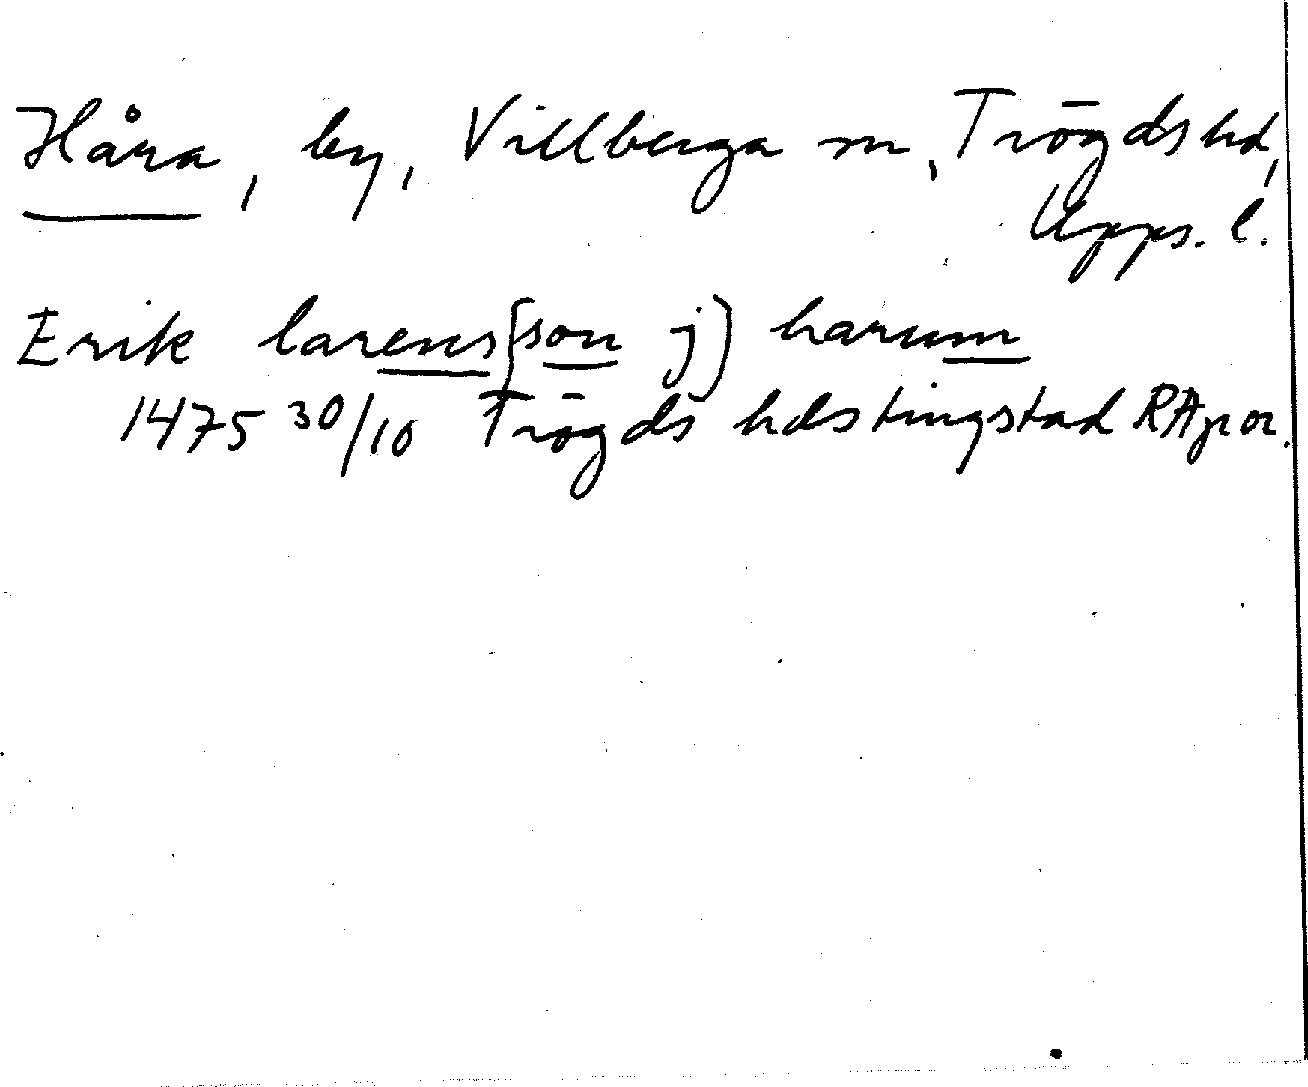 Håra, by, Villberga sn, Trögds hd,
Upps. l.
Erik larens(son j) harum
1475 30/10 Trögds hds tingstad RAp or.